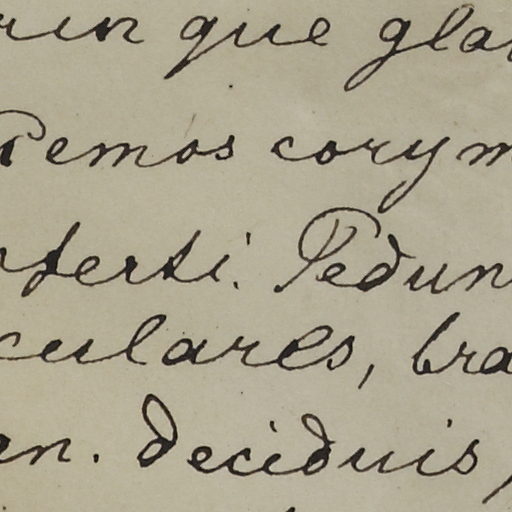 rin que glan
Remos corym
nferti. Pedun
culares, bra
en. deciduis,